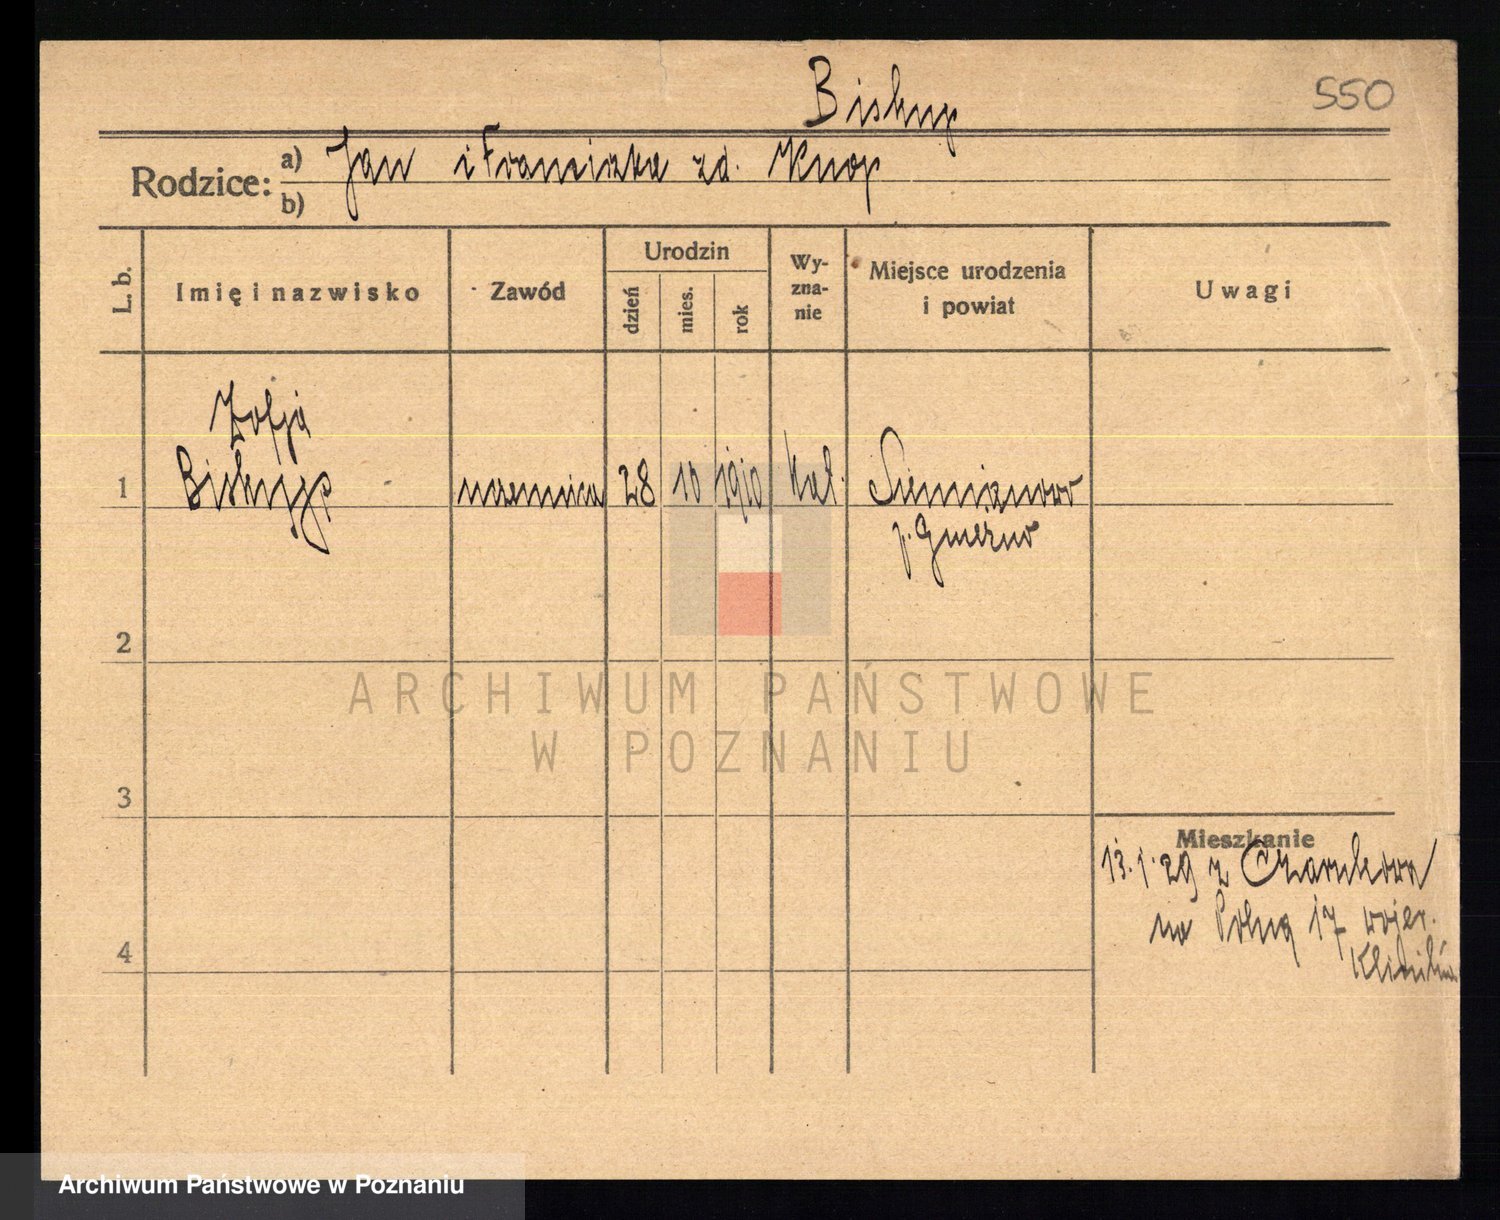 Biskup
550
Rodzice: a) Jan i Franciszka zd. Knop
b)
L. b.
Imię i nazwisko
Zawód
Urodzin
dzień
mies.
rok
Wy-
zna-
nie
Miejsce urodzenia
i powiat
Uwagi
Zofja
1 Biskup uczennica 28 10 1910 kat.
p. Gniezno
2
ARCHIWUM PAŃSTWOWE
W POZNANIU
3
Mieszkanie
13.1.29 z Czarnkowa
na Polną 17
4
Archiwum Państwowe w Poznaniu